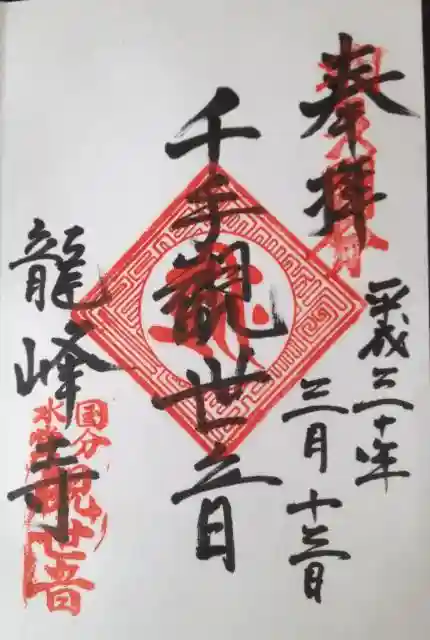 奉拝
平成三十年
三月十三日
千手観世音
龍峰寺
国分
水堂観世音